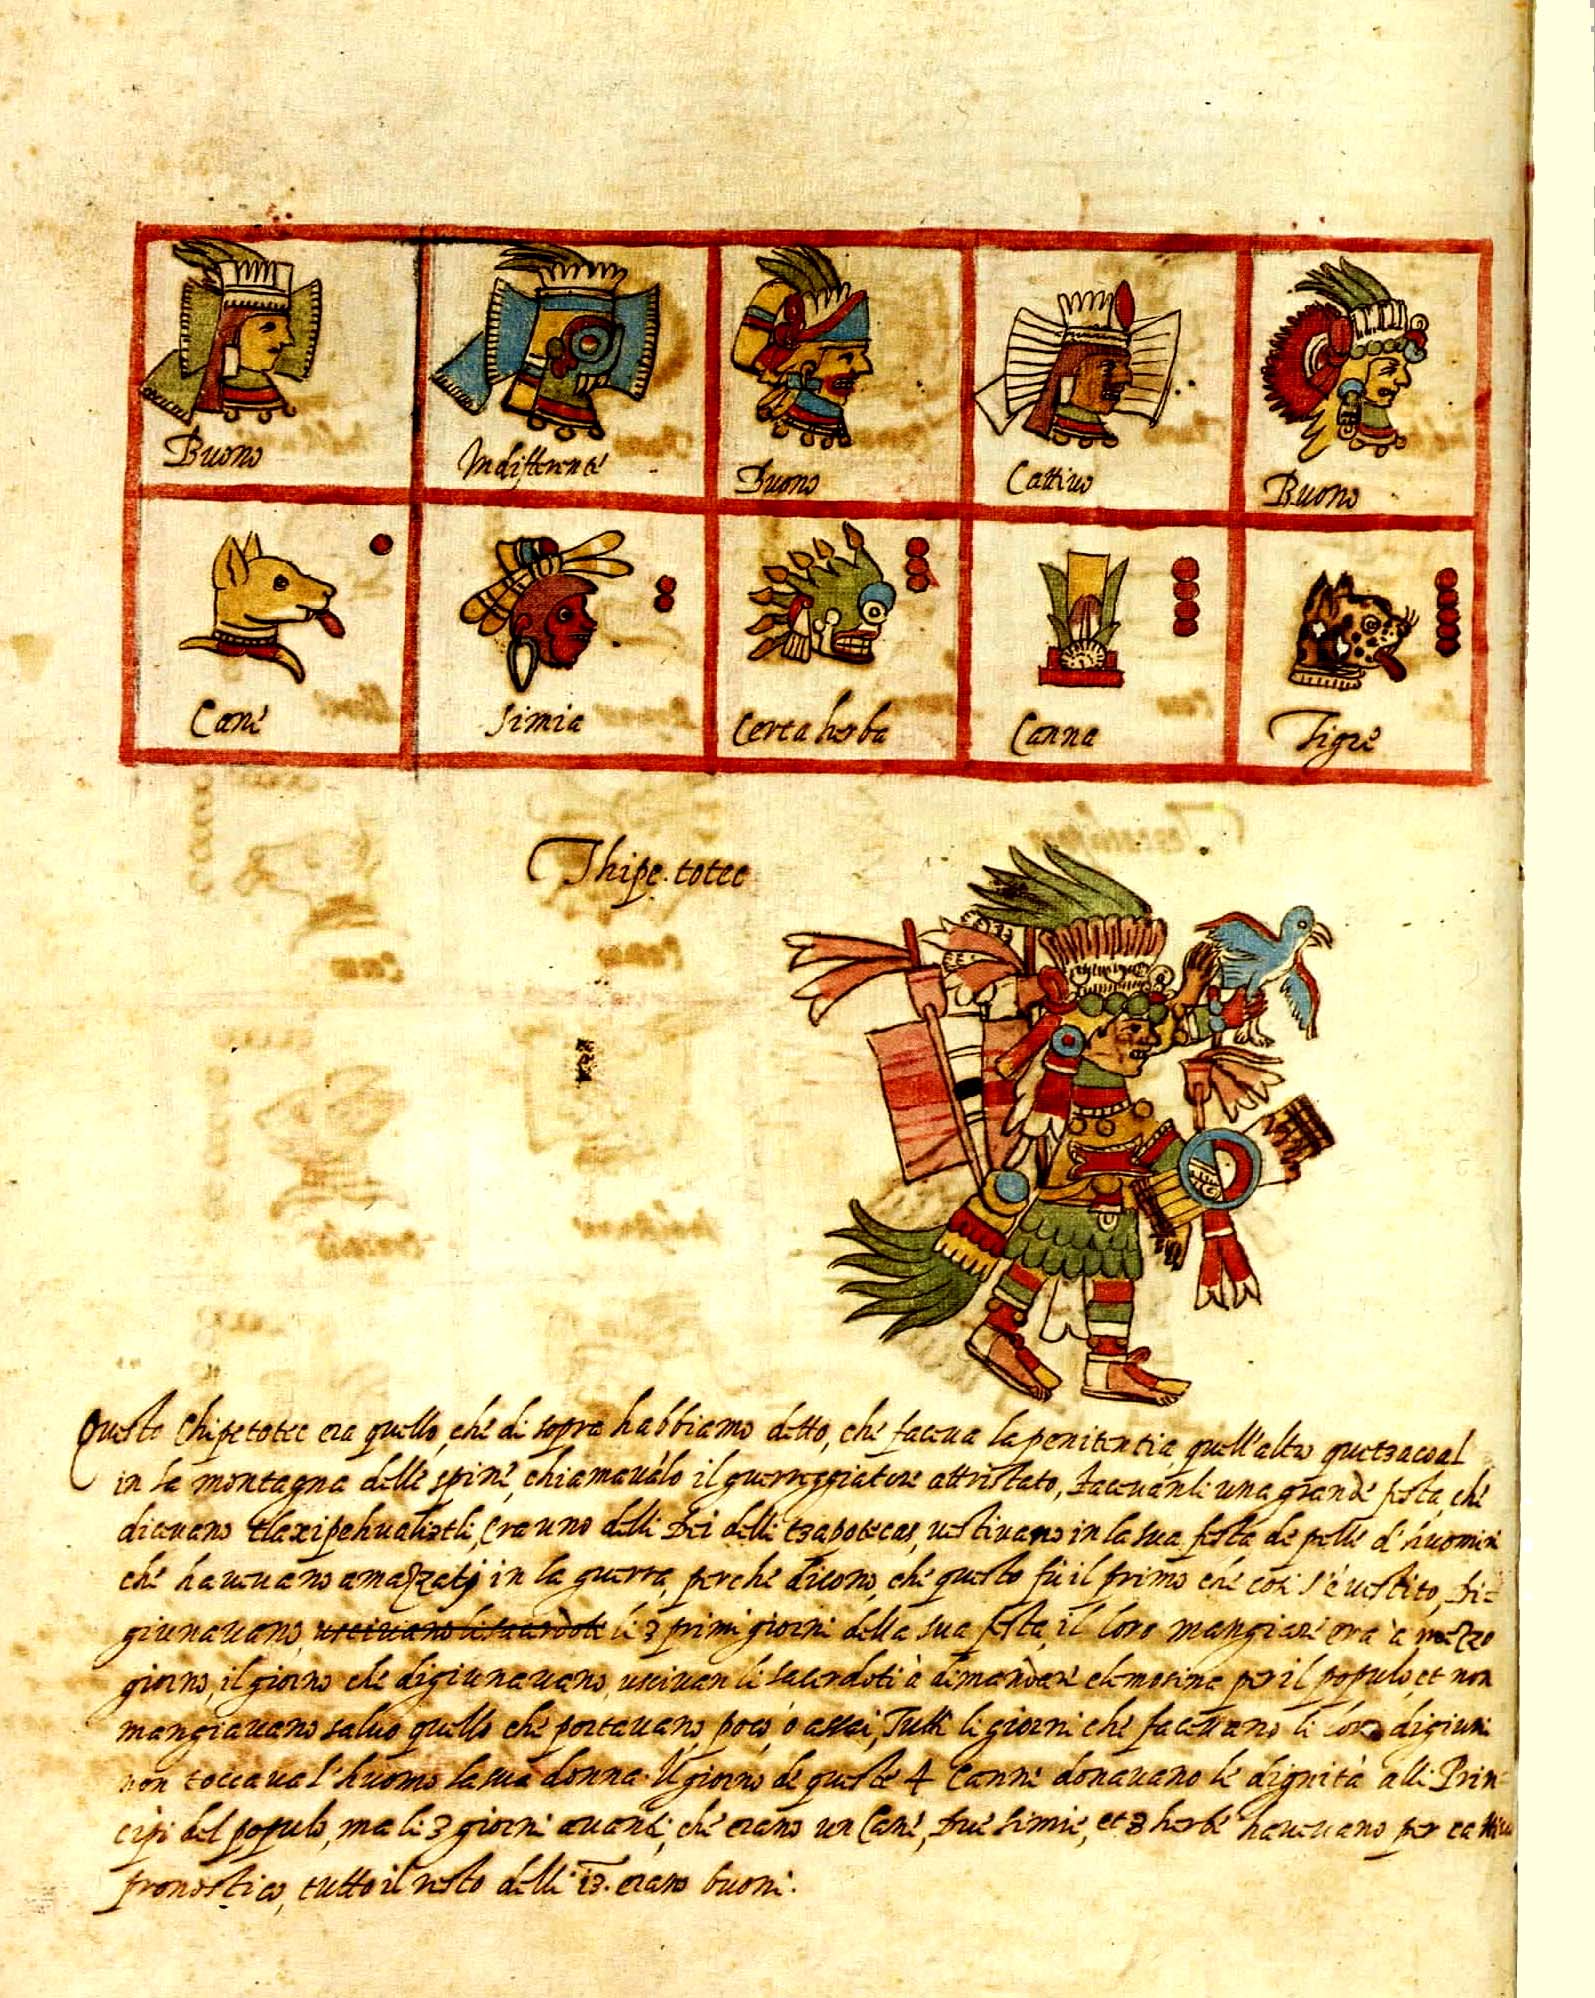 Buono
Indifferente
Buono
Cattivo
Buono
Cane
Simia
Certa herba
Canna
Tigre
Thipe.totec
Questo Chipetotec era quello, che di sopra habbiamo detto, che faceva la penitentia, quell'altro quetzacoal
in la montagna delle spine, chiamavalo il guerreggiatore attristato, Facevanli una grande festa, che
dicevano tlaxipehualiztli, era uno delli Dei delli tzapotecas, vestivano in la sua festa de pelle d'huomini
che havevano amazzati in la guerra, perche dicono, che questo fù il primo che così s'è vestito, Di=
giunavano, uscivano li sacerdote li 3 primi giorni della sua festa, il loro mangiare era à mezzo
giorno, il giorno che digiunavano, uscivan li sacerdoti à dimandare elemosina per il populo, et non
mangiavano salvo quello che portavano, poco, ò assai, Tutti li giorni che facevano li loro digiuni
non toccava l'huomo la sua donna. Il giorno de queste 4 Canne donavano le dignità alli Prin=
cipi del populo, ma li 3 giorni avanti, che erano un Cane, Due simie, et 3 herbe havevano per cattivo
pronostico, tutto il resto delli 13. erano buoni.